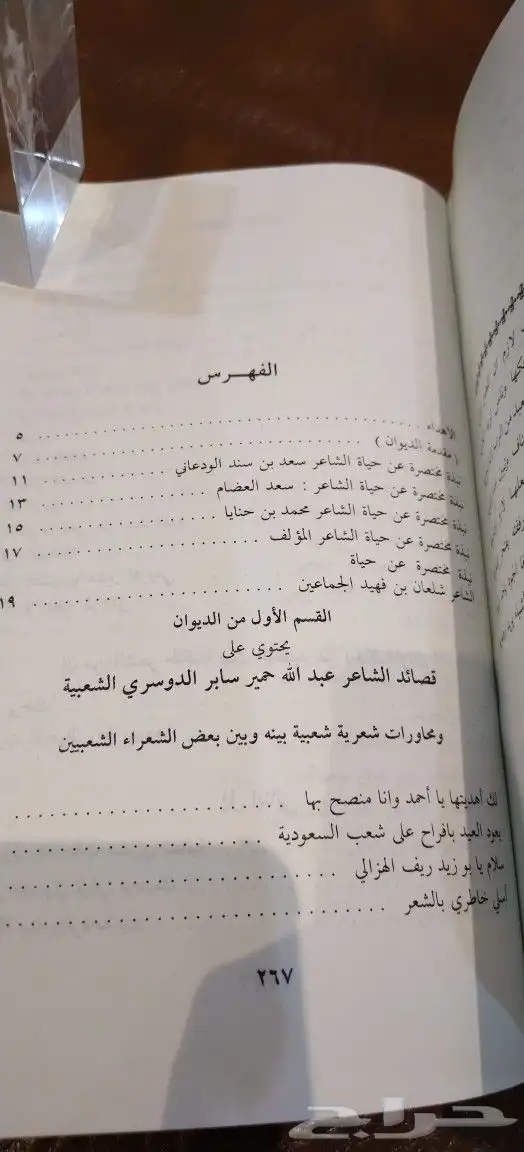 الفهـرس
الاهداء . . . . . . . . . . . . . . . . . . . . ٥
( مقدمة الديوان ) . . . . . . . . . . . . . . . . . ٧
نبذة مختصرة عن حياة الشاعر سعد بن سند الودعاني . . . . . . . . ١١
نبذة مختصرة عن حياة الشاعر : سعد العضام . . . . . . . . . . ١٣
نبذة مختصرة عن حياة الشاعر محمد بن حنايا . . . . . . . . . . ١٥
نبذة مختصرة عن حياة الشاعر المؤلف . . . . . . . . . . . . ١٧
نبذة مختصرة عن حياة
الشاعر شلعان بن فهيد الجماعين . . . . . . . . . . . . ١٩
القسم الأول من الديوان
يحتوي على
قصائد الشاعر عبد الله حمير سابر الدوسري الشعبية
ومحاورات شعرية شعبية بينه وبين بعض الشعراء الشعبيين
لك أهديتها يا أحمد وانا منصح بها . . . . . . . . . . . .
يعود العيد بافراح على شعب السعودية . . . . . . . . . . . .
سلام يا بو زيد ريف الهزالي . . . . . . . . . . . . . . .
أسلي خاطري بالشعر . . . . . . . . . . . . . . . . .
٢٦٧
حراج